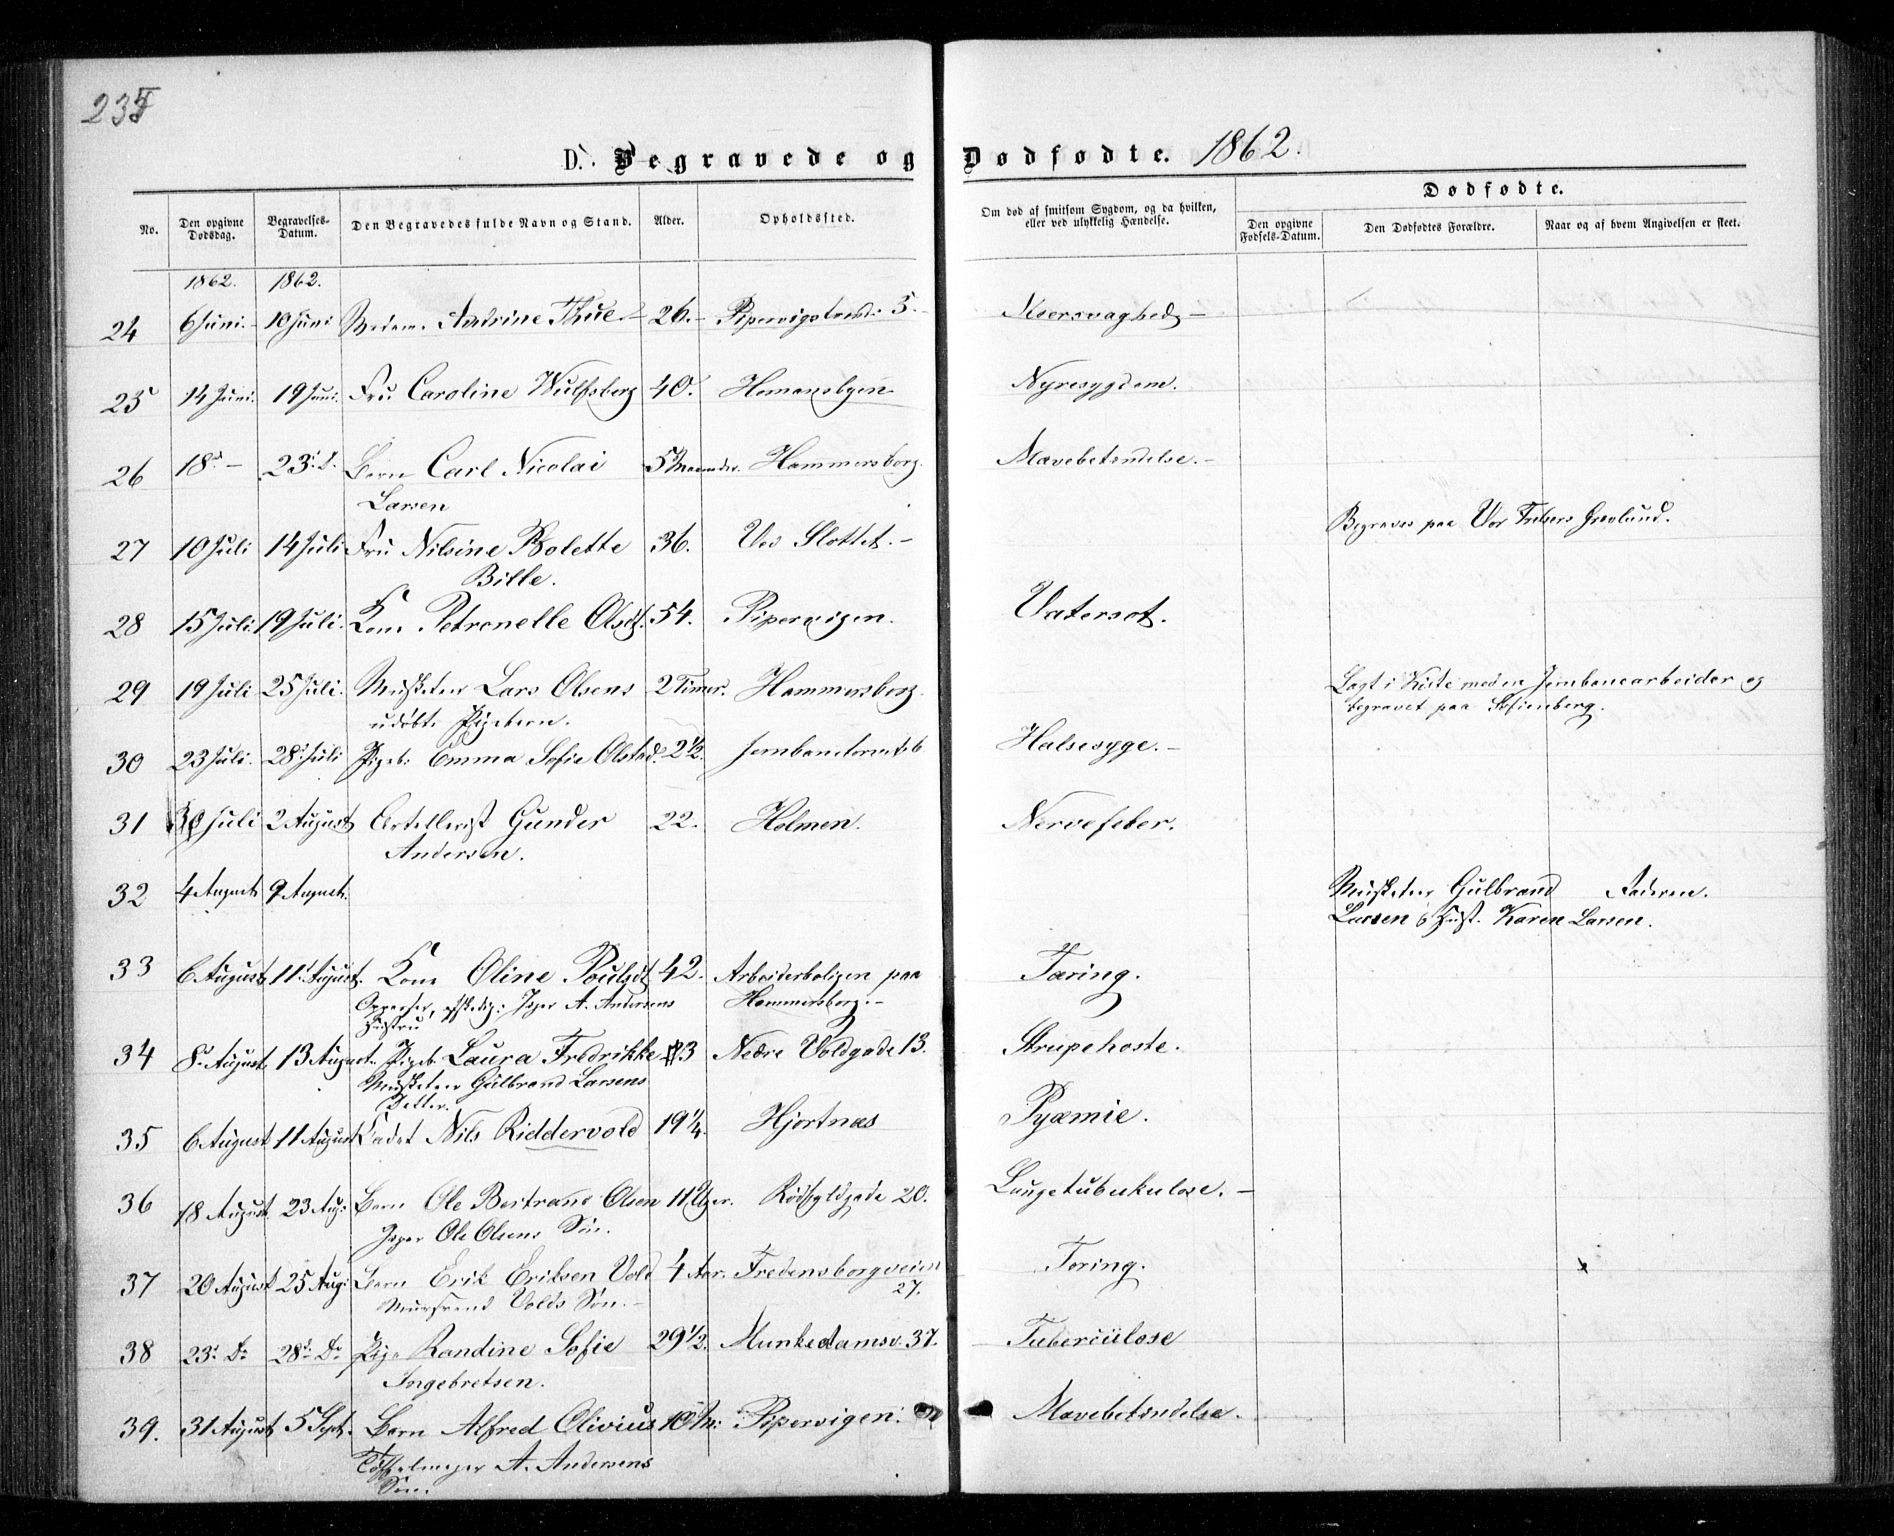 235
D. Begravede og Dødfødte. 1862.
No. Den opgivne Dødsdag. Begravelses-Datum. Den Begravedes fulde Navn og Stand. Alder. Opholdssted. Om død af smitsom Sygdom, og da hvilken, eller ved ulykkelig Hændelse. Dødfødte.
Den opgivne Fødsels-Datum. Den Dødfødtes Forældre. Naar og af hvem Angivelsen er skeet.
1862. 1862.
24 6 Juni. 10 Juni Andrine Thue 26. 5. Nervesvaghed
25 14 Juni. 19 Juni. Fru Caroline Wulfsberg 40. Homansbyen Nyresygdom.
26 18d 23d Barn Carl Nicolai 5 Maaneder. Hammersborg. Mavebetændelse.
Larsen
Begraves paa Vor Frelsers Gravlund.
27 10 Juli 14 Juli Fru Nilsine Bolette 36. Ved Slottet.
Bille.
28 15 Juli. 19 Juli. Kone Petronelle Olsdt. 54. Pipervigen. Vatersot.
29 19 Juli 25 Juli. Musketeer Lars Olsens 2 Timer. Hammersborg. Lagt i Kiste med en Jernbanearbeider og
udøbte Pigebarn. begravet paa Sofienberg.
30 23 Juli. 28 Juli Pigeb. Emma Sofie Olstad. 2 1/2. Halsesyge.
31 30 Juli 2 August Artellerist Gunder 22. Holmen. Nervefeber.
Andersen.
32 4 August 9 August. Musketeer Gulbrand Faderen.
Larsen & Hust. Karen Larsen.
33 6 August 11 August. Kone Oline Poulsdt 42. Arbeiderboligen paa Tæring.
Jæger A. Andersens Hammersborg.
Hustru
34 8 August. 13 August. Pigeb. Laura Fredrikke 3 Nedre Voldgade 13. Strupehoste.
Musketeer Gulbrand Larsens
Datter.
35 6 August 11 August Cadet Nils Riddervold 19 1/4. Hjortnæs Pyæmie.
36 18 August. 23 Aug. Barn Ole Bertrand Olsen 11 Uger. Rødfyldgade 20. Lungetuberkulose.
Jæger Ole Olsens Søn.
37 20 August 25 Aug. Barn Erik Eriksen Vold 4 Aar. Fredensborgveien Tæring.
Mursvend Volds Søn. 27.
38 23d Do 28d Do Pige Randine Sofie 29 1/2. Munkedamsv. 37. Tuberculose
Ingebretsen.
39. 31 August 5 Sept. Barn Alfred Olivius 10 M. Pipervigen. Mavebetændelse.
Tøffelmager A. Andersens
Søn.